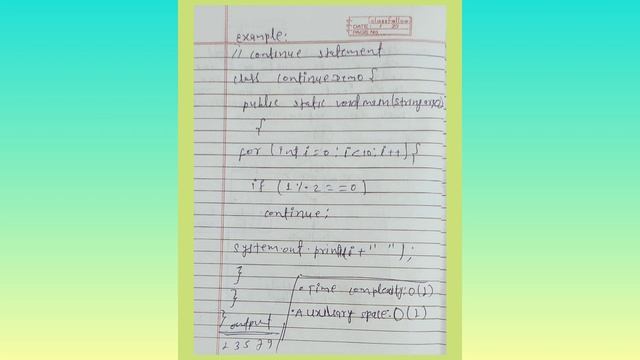 classfellow
DATE: / 20
PAGE NO.
example:
// continue statement
class continuezemo {
public static void main(string args)
{
for (int i=0; i<10; i++) {
if (1 % 2 = = 0)
continue;
system.out.print(i + " ");
}
}
}
output
2 3 5 7 9
• Time complexity: O(1)
• Auxiliary space: O(1)